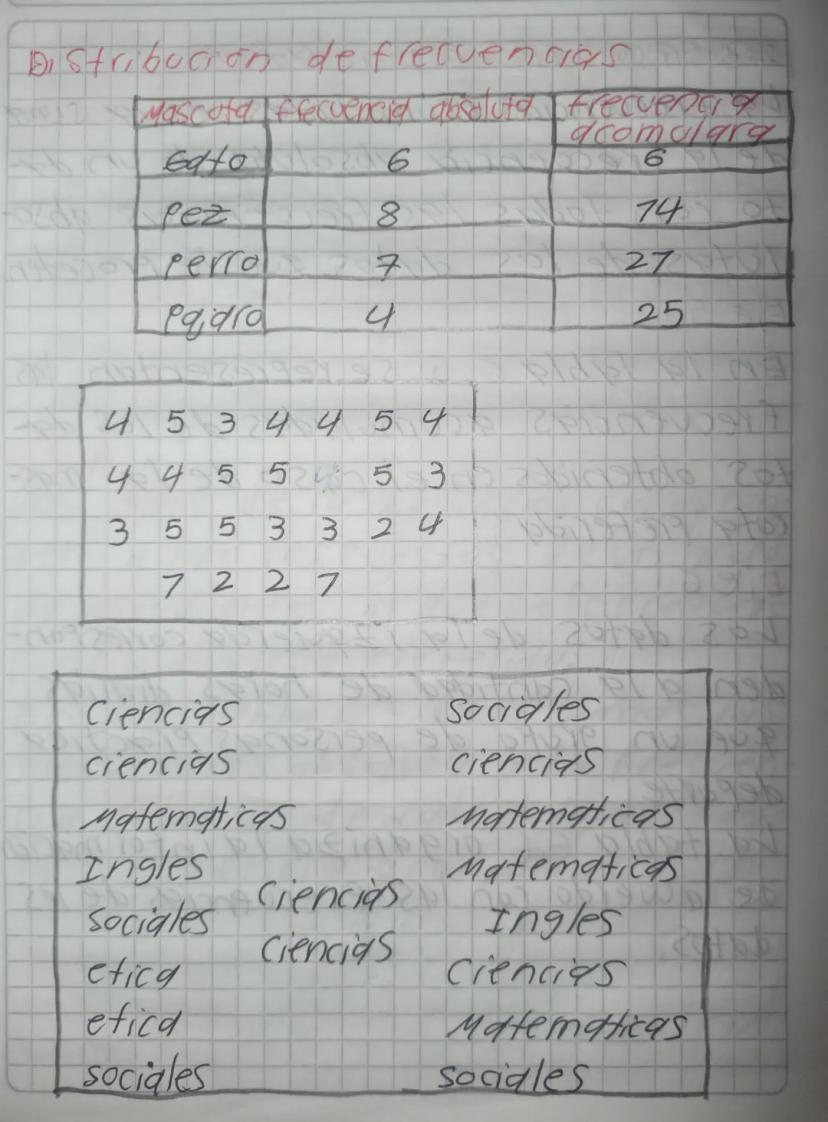 Distribución de frecuencias
Mascota frecuencia absoluta frecuencia acomulara
Gato 6 6
Pez 8 14
Perro 7 21
Pajaro 4 25
4 5 3 4 4 5 4
4 4 5 5 5 3
3 5 5 3 3 2 4
1 2 2 1
Ciencias Sociales
ciencias ciencias
Matematicas Matematicas
Ingles Matematicas
Ciencias
sociales Ingles
Ciencias
etica Ciencias
etica Matematicas
sociales sociales